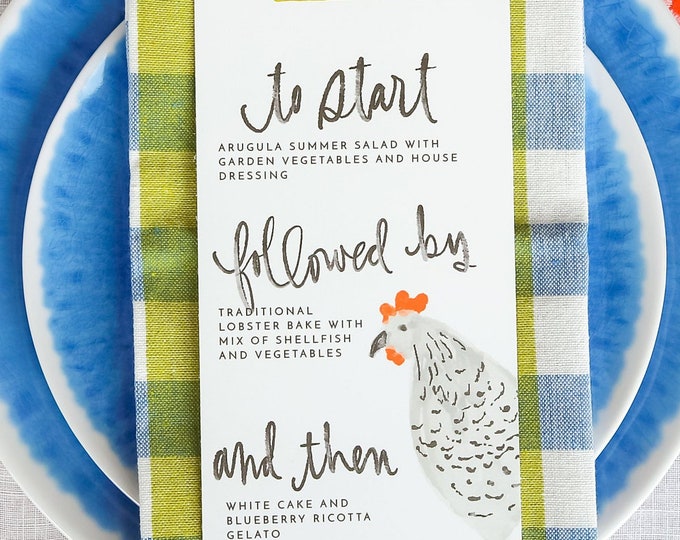 to start
ARUGULA SUMMER SALAD WITH
GARDEN VEGETABLES AND HOUSE
DRESSING
followed by
TRADITIONAL
LOBSTER BAKE WITH
MIX OF SHELLFISH
AND VEGETABLES
and then
WHITE CAKE AND
BLUEBERRY RICOTTA
GELATO